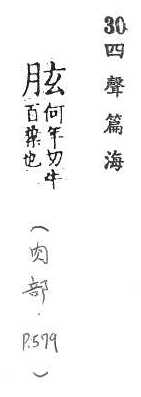 30四聲篇海
胘何年切牛
百葉也
（肉部．P.579）